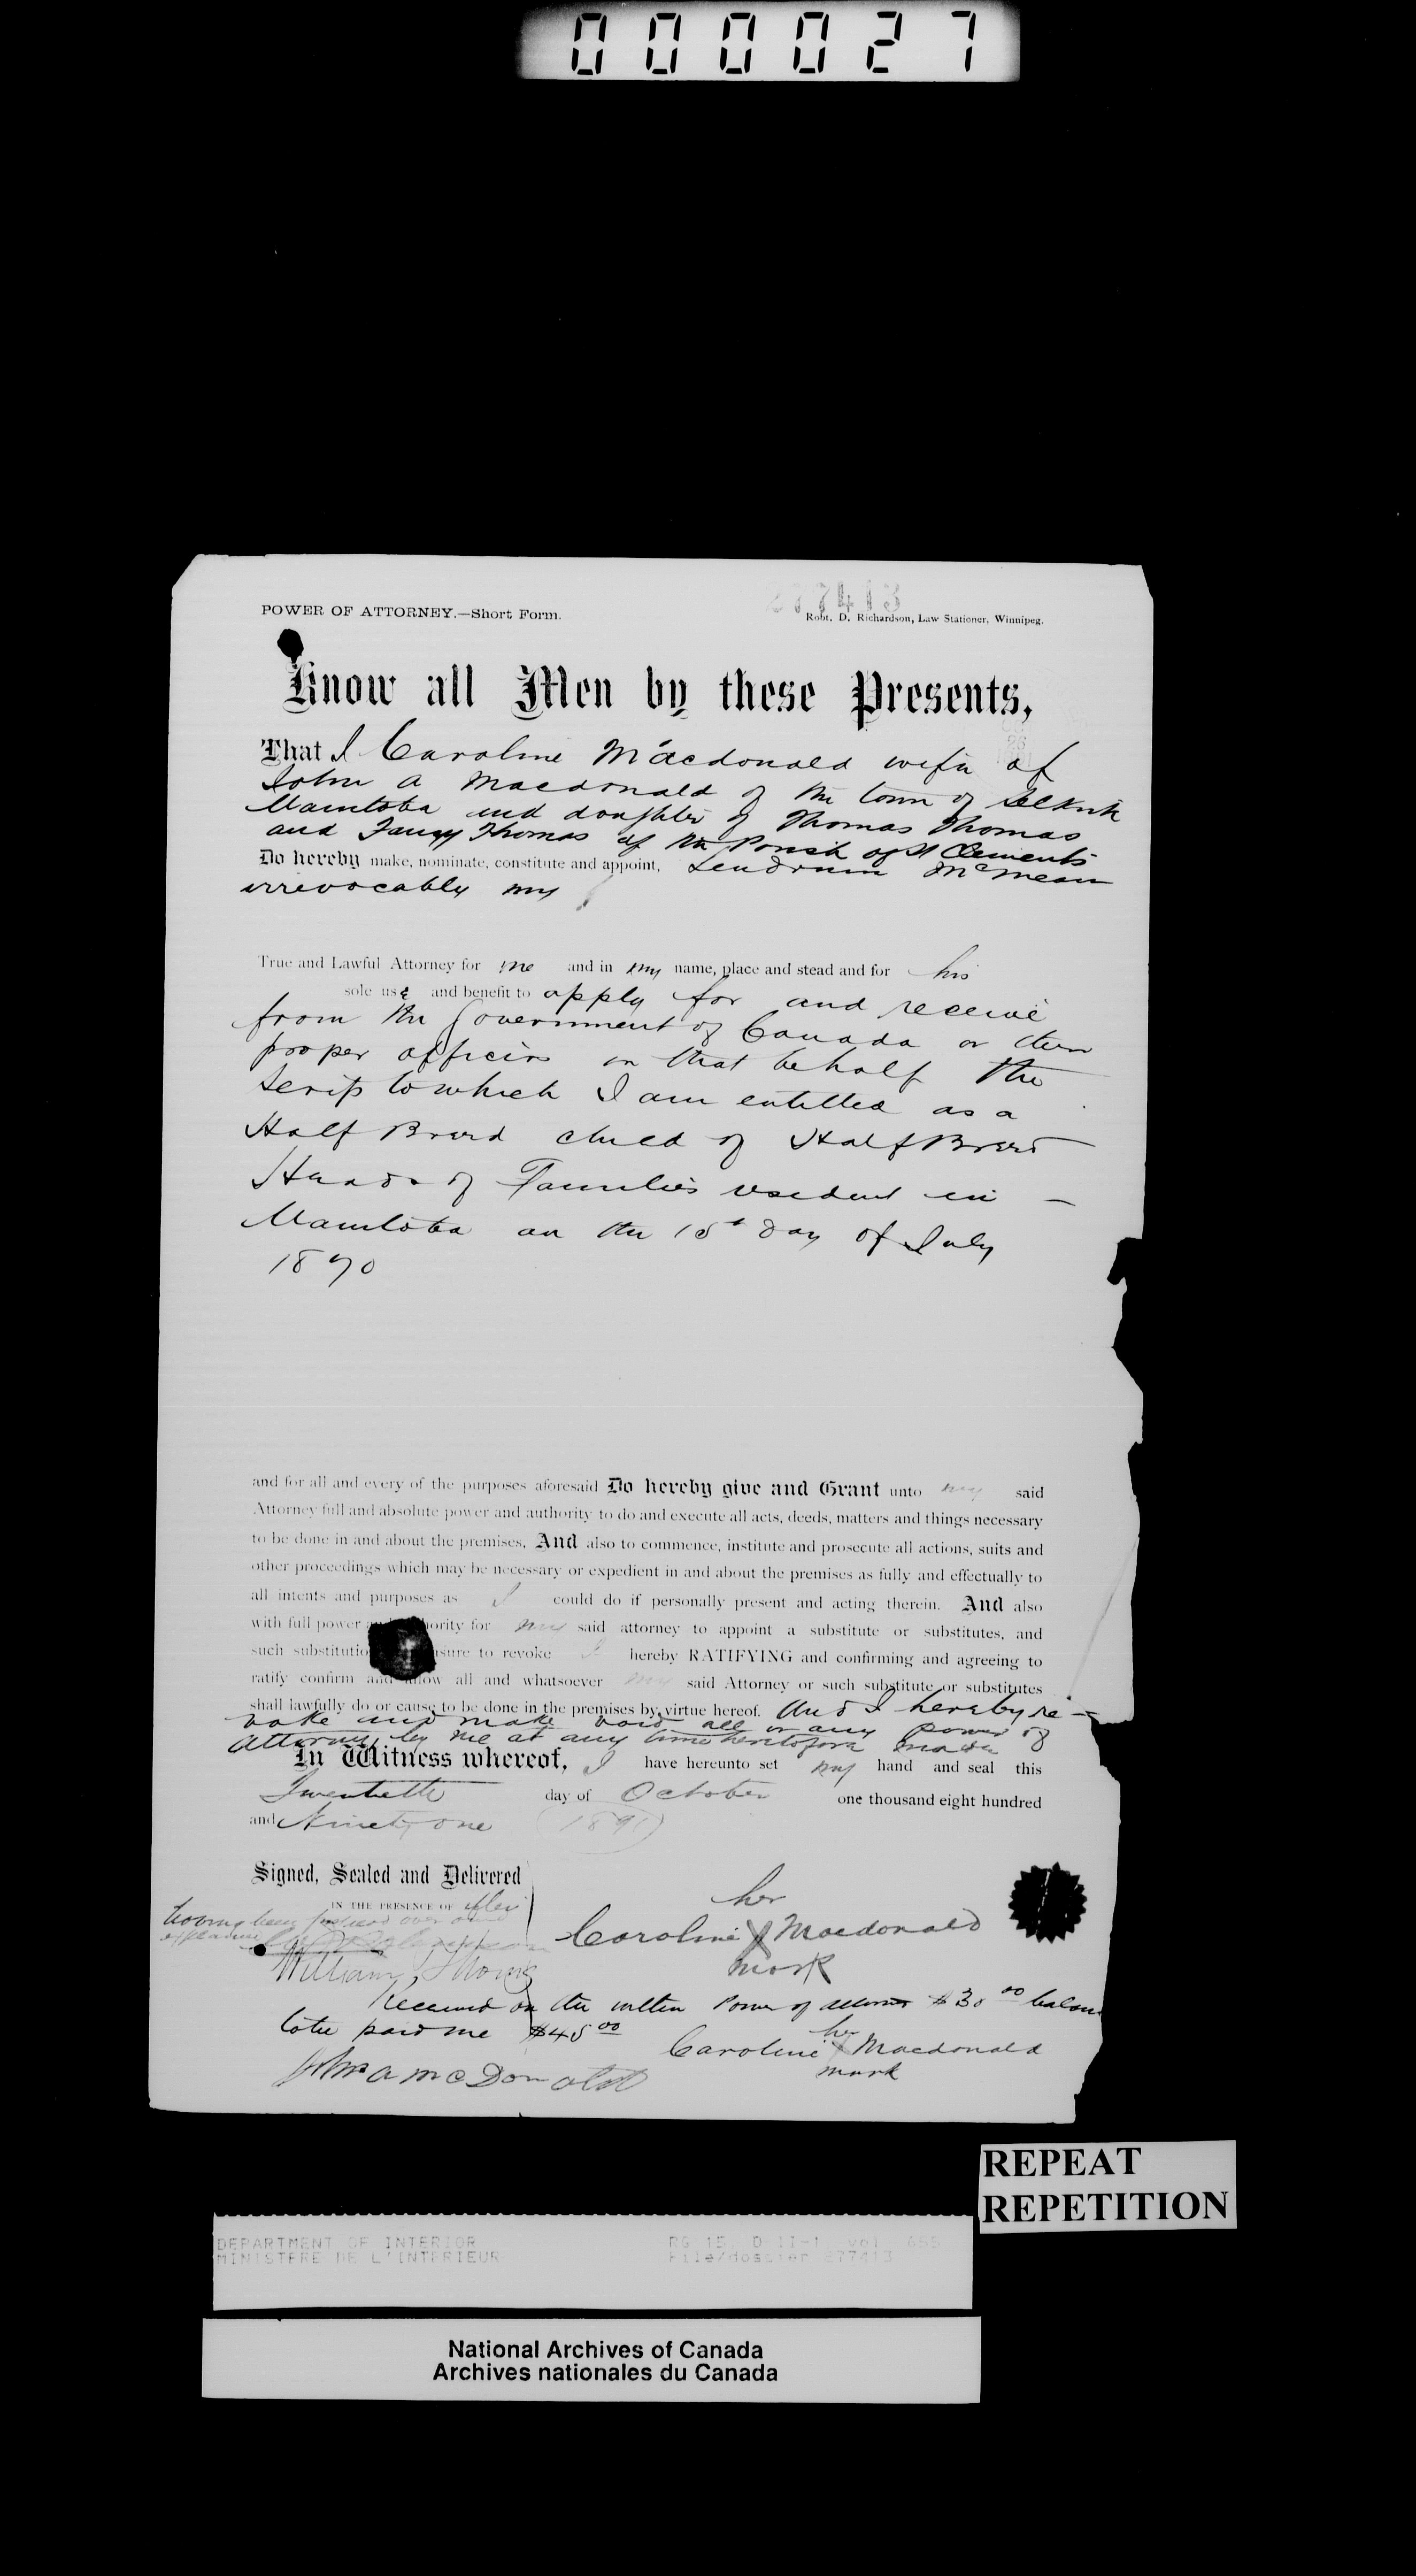 000027
277413
POWER OF ATTORNEY.—Short Form.
Robt. D. Richardson, Law Stationer, Winnipeg.
Know all Men by these Presents,
That I Caroline Macdonald wife of
John A Macdonald of the town of Selkirk
Manitoba and daughter of Thomas Thomas
and Fanny Thomas of the Parish of St Clements
Do hereby make, nominate, constitute and appoint, Lendrum McMeans
irrevocably my
True and Lawful Attorney for me and in my name, place and stead and for his
sole use and benefit to apply for and receive
from the Government of Canada or their
proper officers in that behalf the
scrip to which I am entitled as a
Half Breed child of Half Breed
Heads of Families resident in —
Manitoba on the 15th day of July
1870
and for all and every of the purposes aforesaid Do hereby give and Grant unto my said
Attorney full and absolute power and authority to do and execute all acts, deeds, matters and things necessary
to be done in and about the premises, And also to commence, institute and prosecute all actions, suits and
other proceedings which may be necessary or expedient in and about the premises as fully and effectually to
all intents and purposes as I could do if personally present and acting therein. And also
with full power and authority for my said attorney to appoint a substitute or substitutes, and
such substitution to revoke I hereby RATIFYING and confirming and agreeing to
ratify confirm and allow all and whatsoever my said Attorney or such substitute or substitutes
shall lawfully do or cause to be done in the premises by virtue hereof. And I hereby re-
voke and make void all or any power of
Attorney by me at any time heretofore made
In Witness whereof, I have hereunto set my hand and seal this
Twentieth day of October one thousand eight hundred
and Ninety one (1891)
Signed, Sealed and Delivered
IN THE PRESENCE OF after
having been read over and
explained
William Thomas
her
Caroline X Macdonald
mark
Received on the within Power of Attorney $30 00 balance
to be paid me $45 00
her
Caroline X Macdonald
mark
John A McDonald
REPEAT
REPETITION
DEPARTMENT OF INTERIOR
MINISTERE DE L'INTERIEUR
RG 15, D-II-1, vol. 655
File/dossier 277413
National Archives of Canada
Archives nationales du Canada